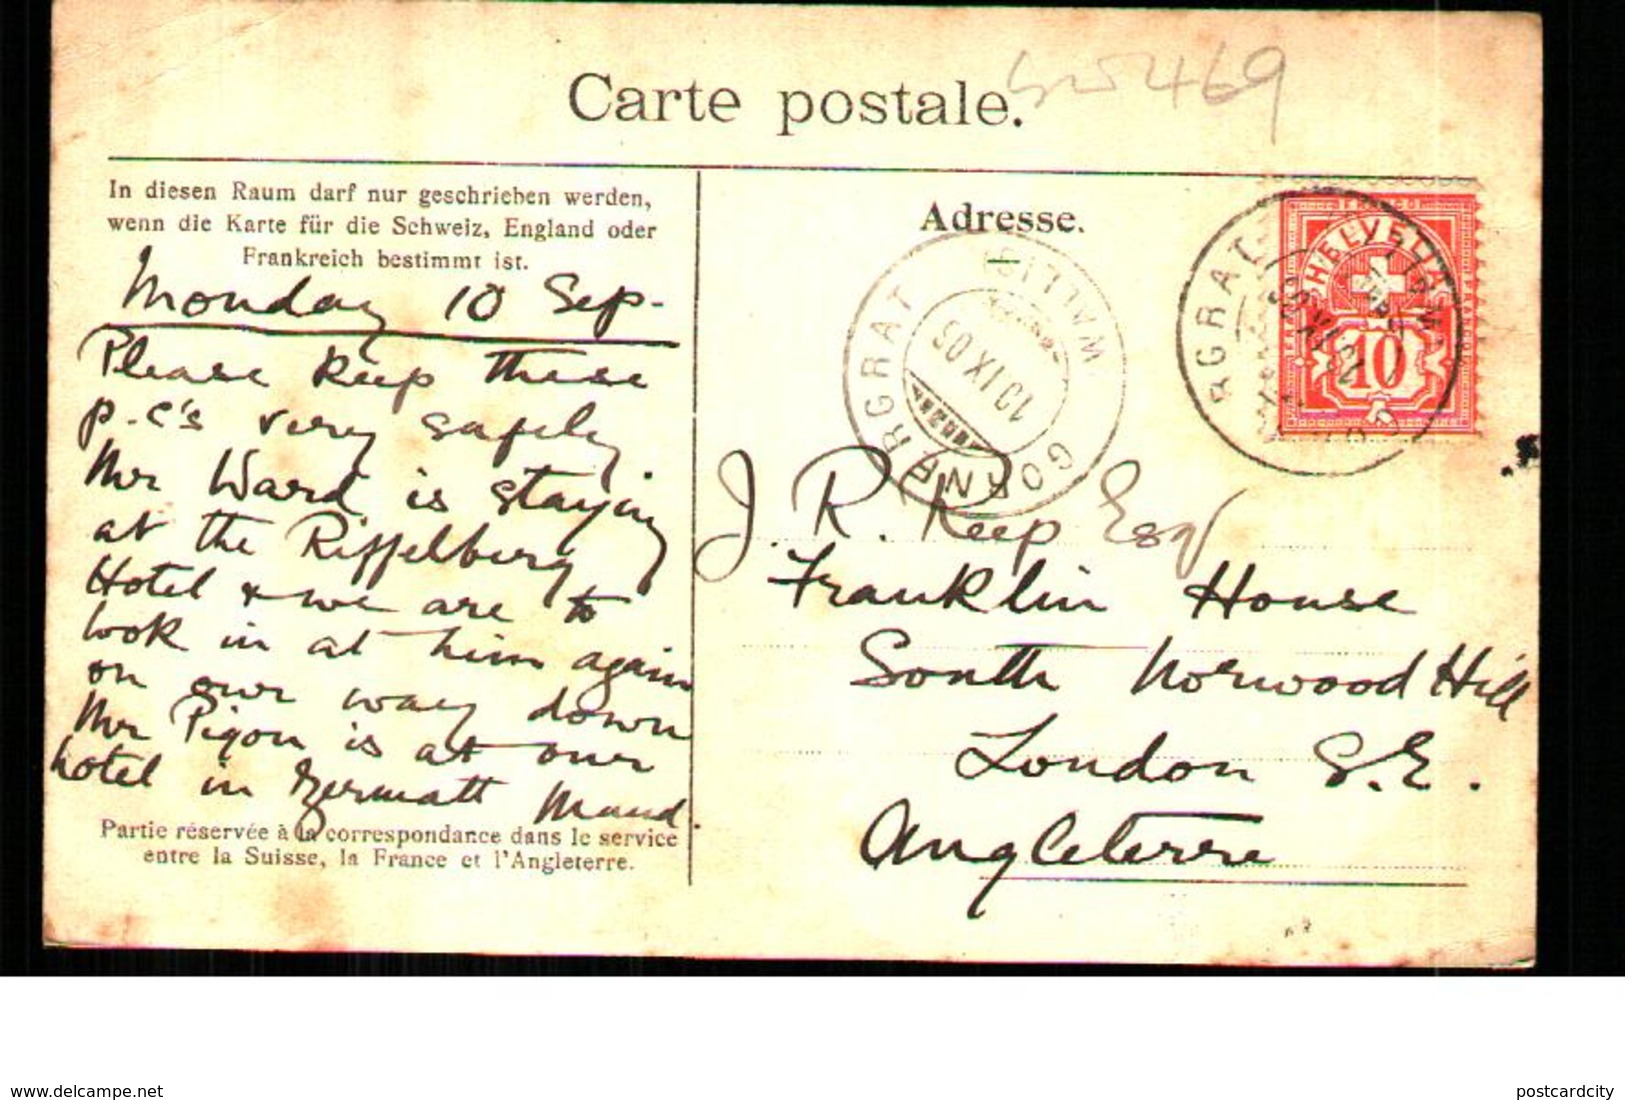 Carte postale.
469
In diesen Raum darf nur geschrieben werden,
wenn die Karte für die Schweiz, England oder
Frankreich bestimmt ist.
Monday 10 Sep.
Please keep these
p.c's very safely
Mr Ward is staying
at the Riffelberg
Hotel & we are to
look in at him again
on our way down
Mr Pigou is at our
hotel in Zermatt Maud.
Partie réservée à la correspondance dans le service
entre la Suisse, la France et l'Angleterre.
Adresse.
GORNERGRAT
(WALLIS)
10 IX 06
HELVETIA
10
J. R. Keep Esqr
Franklin House
South Norwood Hill
London S.E.
Angleterre
www.delcampe.net
postcardcity